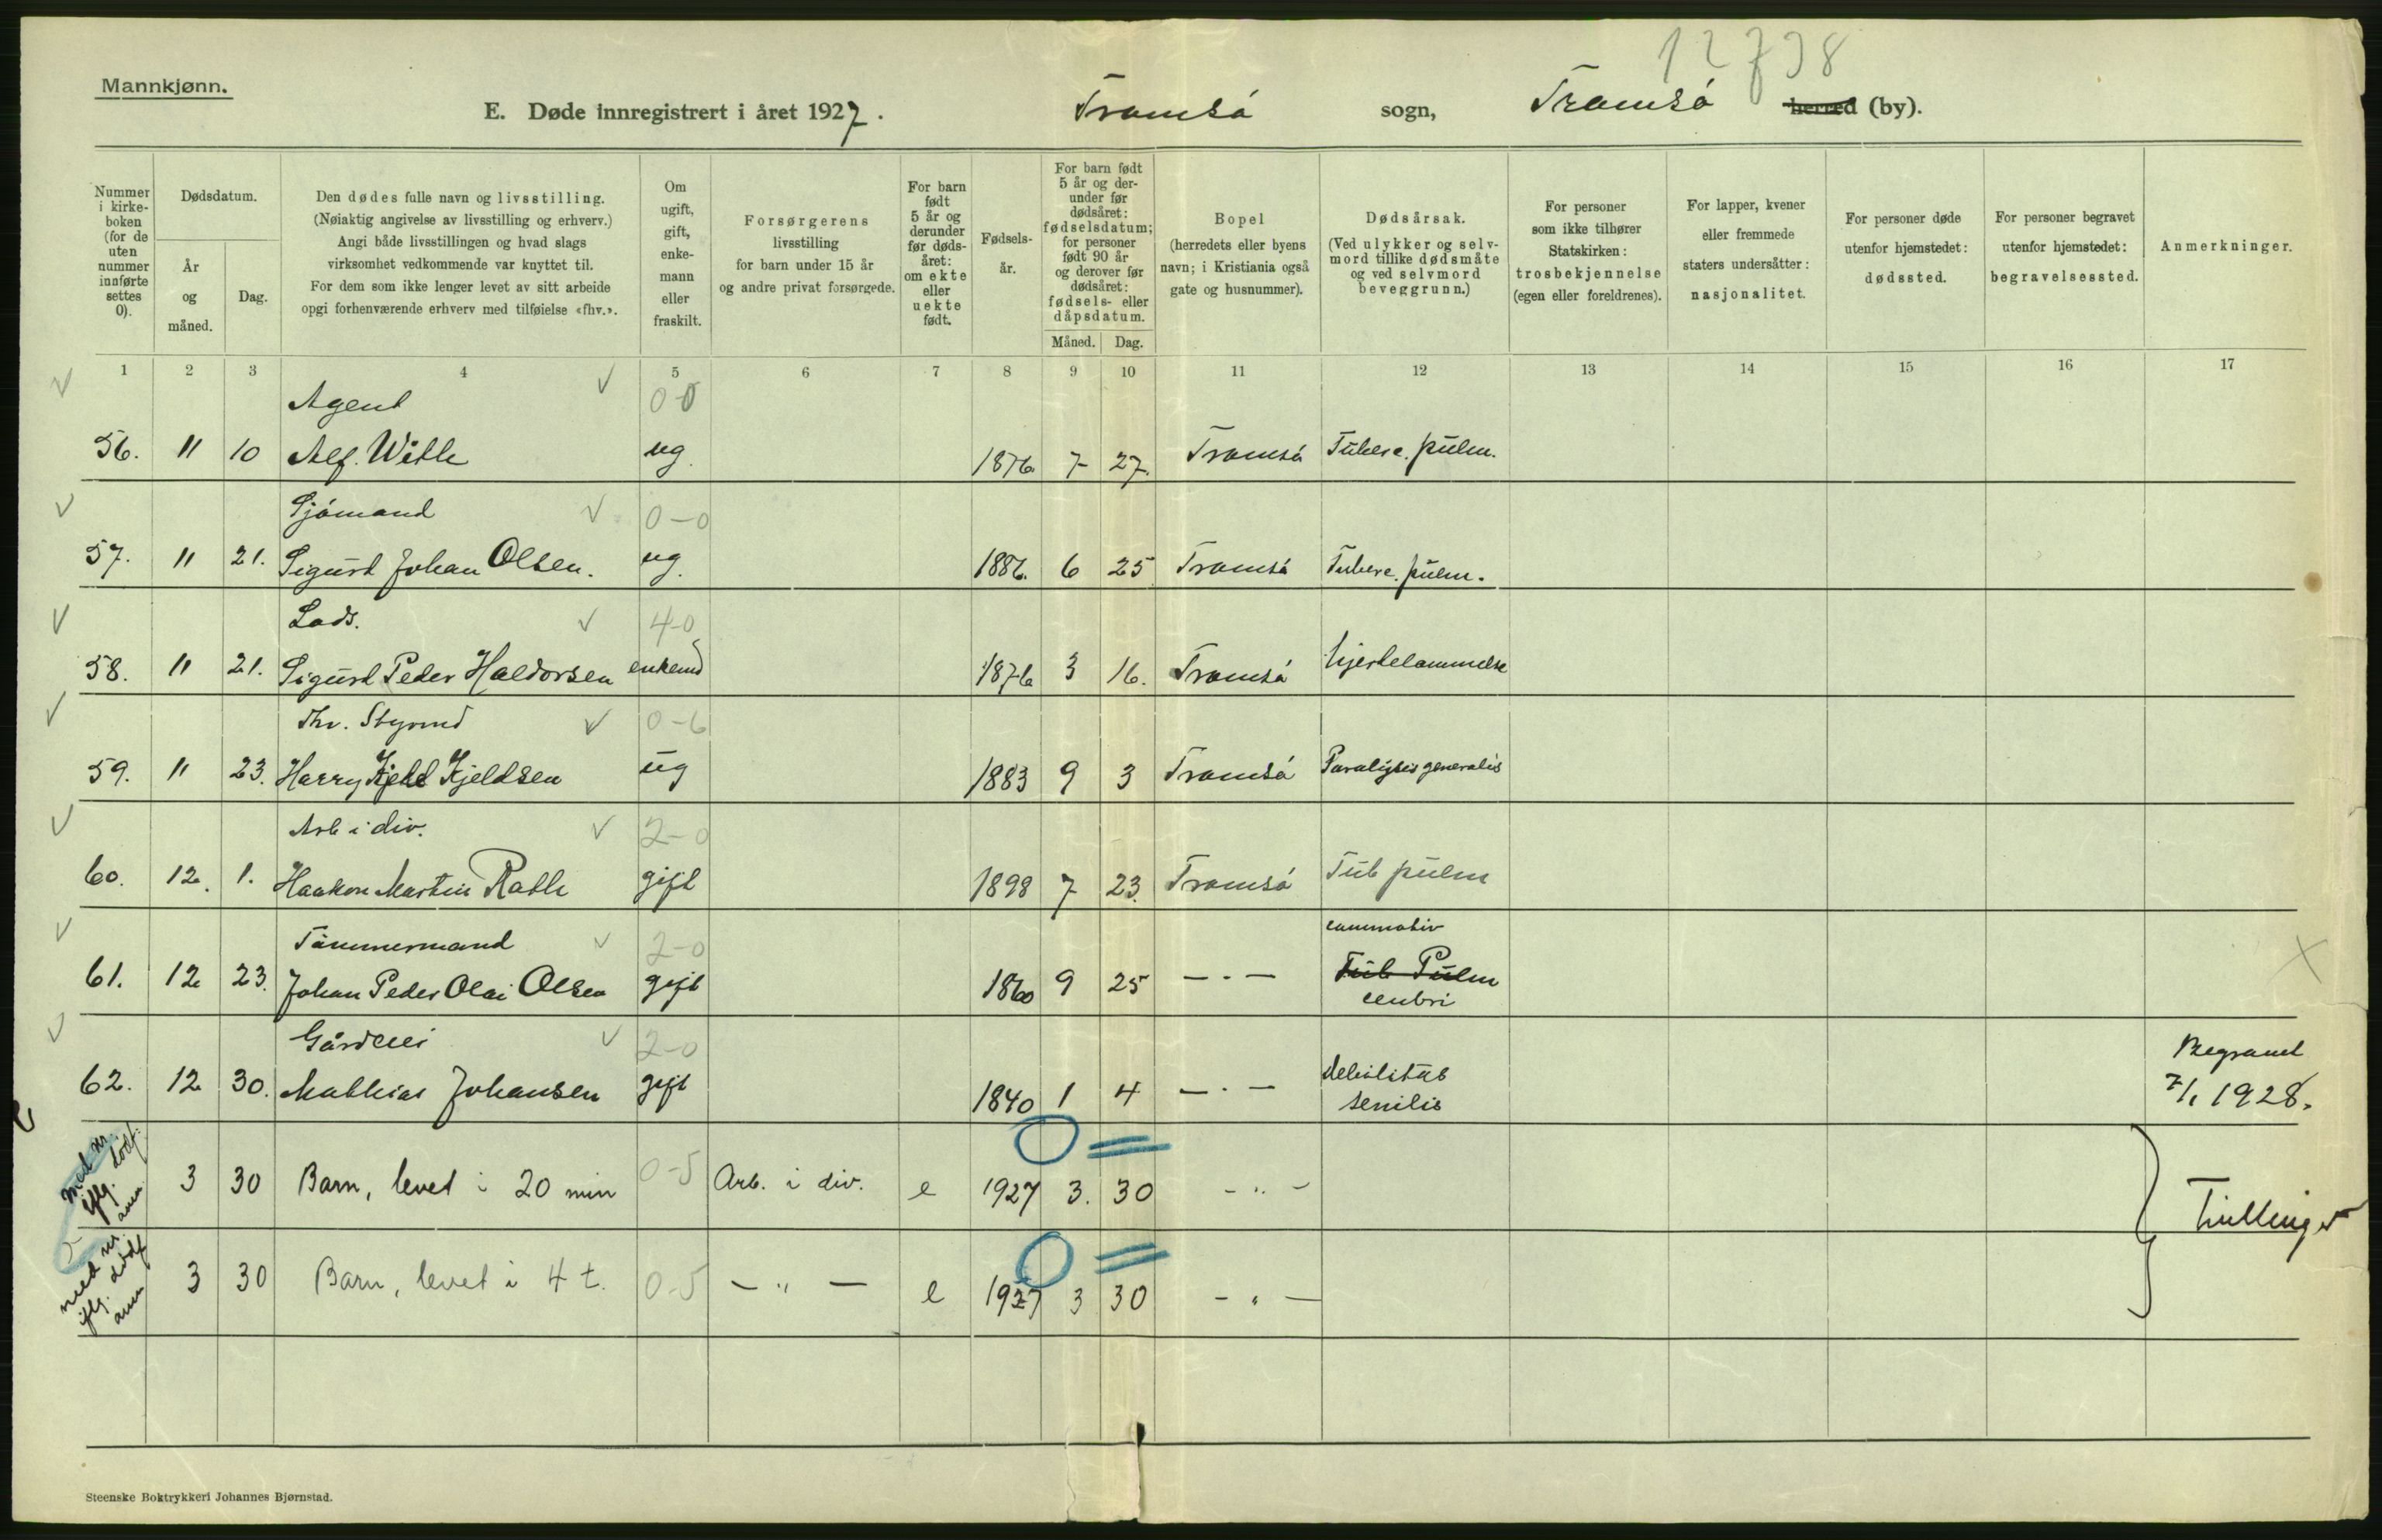 12738
Mannkjønn.
E. Døde innregistrert i året 1927. Tromsö sogn, Tromsö herred (by).
Nummer i kirkeboken (for de uten nummer innførte settes 0).
Dødsdatum.
År og måned.
Dag.
Den dødes fulle navn og livsstilling.
(Nøiaktig angivelse av livsstilling og erhverv.)
Angi både livsstillingen og hvad slags
virksomhet vedkommende var knyttet til.
For dem som ikke lenger levet av sitt arbeide
opgi forhenværende erhverv med tilføielse «fhv.».
Om ugift, gift, enkemann eller fraskilt.
Forsørgerens
livsstilling
for barn under 15 år
og andre privat forsørgede.
For barn født 5 år og derunder før dødsåret: om ekte eller uekte født.
Fødselsår.
For barn født 5 år og derunder før dødsåret: fødselsdatum; for personer født 90 år og derover før dødsåret: fødsels- eller dåpsdatum.
Måned. Dag.
Bopel
(herredets eller byens
navn; i Kristiania også
gate og husnummer).
Dødsårsak.
(Ved ulykker og selvmord tillike dødsmåte
og ved selvmord
beveggrunn.)
For personer
som ikke tilhører
Statskirken:
trosbekjennelse
(egen eller foreldrenes).
For lapper, kvener
eller fremmede
staters undersåtter:
nasjonalitet.
For personer døde
utenfor hjemstedet:
dødssted.
For personer begravet
utenfor hjemstedet:
begravelsessted.
Anmerkninger.
1 2 3 4 5 6 7 8 9 10 11 12 13 14 15 16 17
Agent 0-0
56. 11 10 Alf. Witth ug. 1876 7 27. Tromsö Tuberc. pulm.
Sjömand 0-0
57. 11 21. Sigurd Johan Olsen. ug. 1886. 6 25 Tromsö Tuberc. pulm.
Lods. 4-0
58. 11 21. Sigurd Peder Haldorsen enkemd 1876 3 16. Tromsö hjertelammelse
Fhv. Styrmd 0-6
59. 11 23. Harry Kjeld Kjeldsen ug 1883 9 3 Tromsö Paralysis generalis
Arb i div. 2-0
60. 12. 1. Haakon Martin Rabth gift 1898 7 23. Tromsö Tub pulm
Tömmermand 2-0
61. 12 23. Johan Peder Olai Olsen gift 1860 9 25 — . — Tub Pulm
Gårdeier 2-0
62. 12 30. Mathias Johansen gift 1840 1 4 — . — debilitas senilis
Begravet 7/1 1928.
3 30 Barn, levet i 20 min 0-5 Arb. i div. e 1927 3. 30 - " -
Trillinger
3 30 Barn, levet i 4 t. 0-5 — " — e 1927 3 30 - " -
Steenske Boktrykkeri Johannes Bjørnstad.